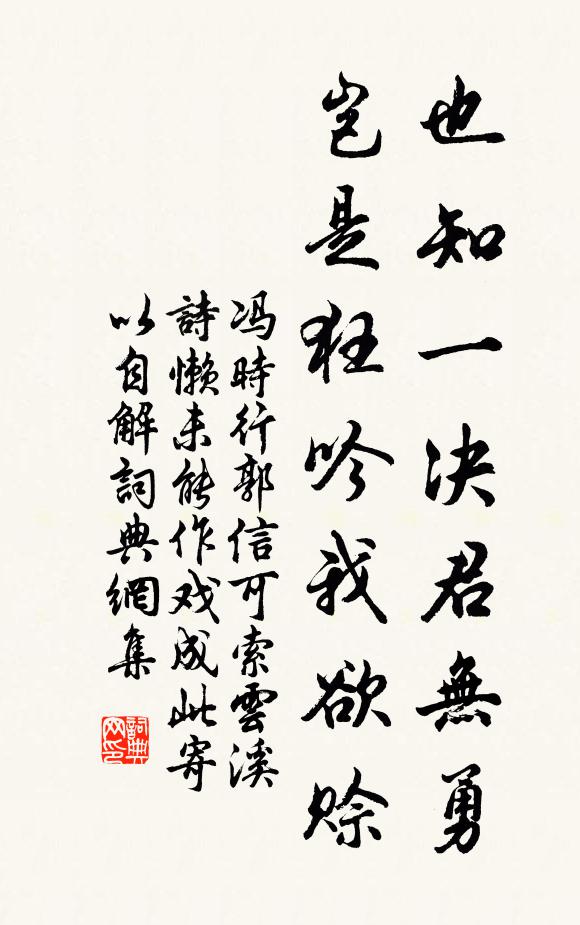 也知一决君無勇
岂是狂吟我欲赊
冯時行郭信可索雲溪
詩懒未能作戏成此寄
以自解詞典網集
詞典网印